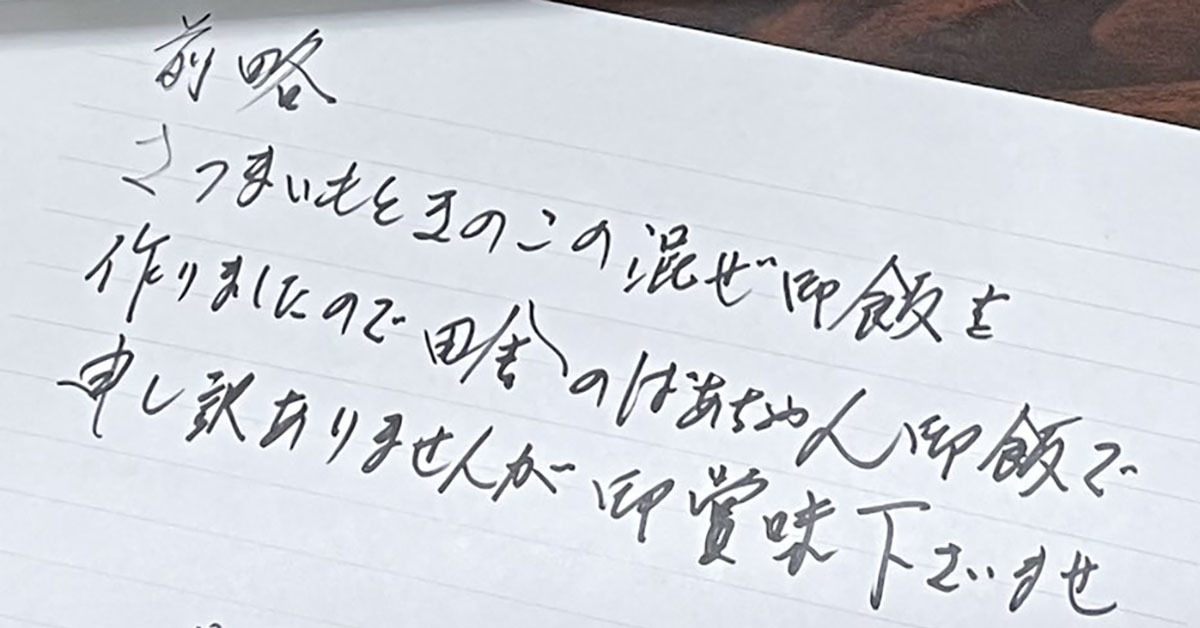 前略
さつまいもときのこの混ぜ御飯を
作りましたので田舎のばあちゃん御飯で
申し訳ありませんが御賞味下さいませ